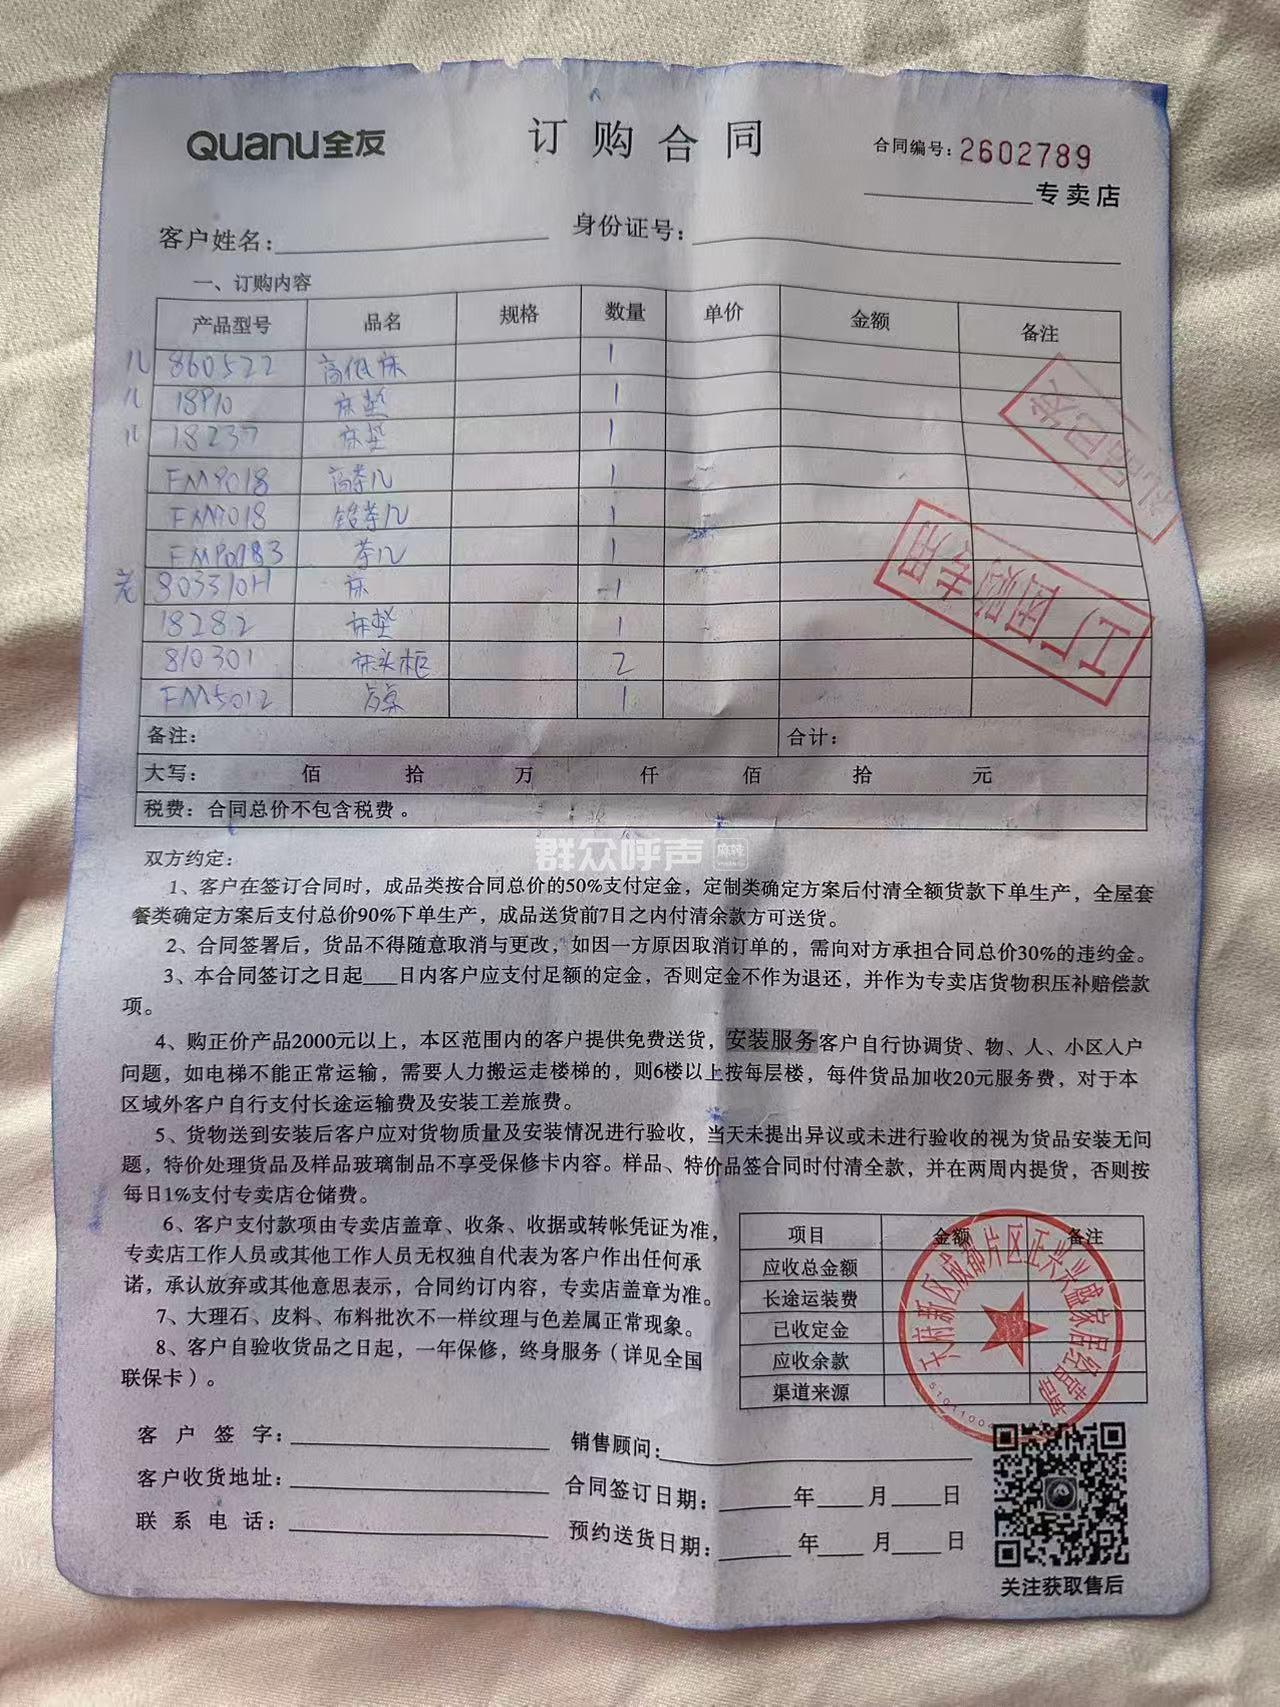 Quanu全友
订购合同
合同编号:2602789
专卖店
客户姓名:
身份证号:
一、订购内容
产品型号 品名 规格 数量 单价 金额 备注
儿 860522 高低床 1
儿 18P10 床垫 1
儿 18237 床垫 1
FM9018 高茶几 1
FM9018 茶几 1
茶几 1
老 803310H 床 1
18282 床垫 1
810301 床头柜 2
FM5012 1
礼品已发
工厂团购专用
备注: 合计:
大写: 佰 拾 万 仟 佰 拾 元
税费:合同总价不包含税费。
群众呼声 麻辣
双方约定:
1、客户在签订合同时,成品类按合同总价的50%支付定金,定制类确定方案后付清全额货款下单生产,全屋套
餐类确定方案后支付总价90%下单生产,成品送货前7日之内付清余款方可送货。
2、合同签署后,货品不得随意取消与更改,如因一方原因取消订单的,需向对方承担合同总价30%的违约金。
3、本合同签订之日起___日内客户应支付足额的定金,否则定金不作为退还,并作为专卖店货物积压补赔偿款
项。
4、购正价产品2000元以上,本区范围内的客户提供免费送货,安装服务客户自行协调货、物、人、小区入户
问题,如电梯不能正常运输,需要人力搬运走楼梯的,则6楼以上按每层楼,每件货品加收20元服务费,对于本
区域外客户自行支付长途运输费及安装工差旅费。
5、货物送到安装后客户应对货物质量及安装情况进行验收,当天未提出异议或未进行验收的视为货品安装无问
题,特价处理货品及样品玻璃制品不享受保修卡内容。样品、特价品签合同时付清全款,并在两周内提货,否则按
每日1%支付专卖店仓储费。
6、客户支付款项由专卖店盖章、收条、收据或转帐凭证为准,
专卖店工作人员或其他工作人员无权独自代表为客户作出任何承
诺,承认放弃或其他意思表示,合同约订内容,专卖店盖章为准。
7、大理石、皮料、布料批次不一样纹理与色差属正常现象。
8、客户自验收货品之日起,一年保修,终身服务(详见全国
联保卡)。
项目 金额 备注
应收总金额
长途运装费
已收定金
应收余款
渠道来源
天府新区成都片区正兴兴盛家居经营部
客户签字:
销售顾问:
客户收货地址:
合同签订日期:____年___月___日
联系电话:
预约送货日期:____年___月___日
关注获取售后